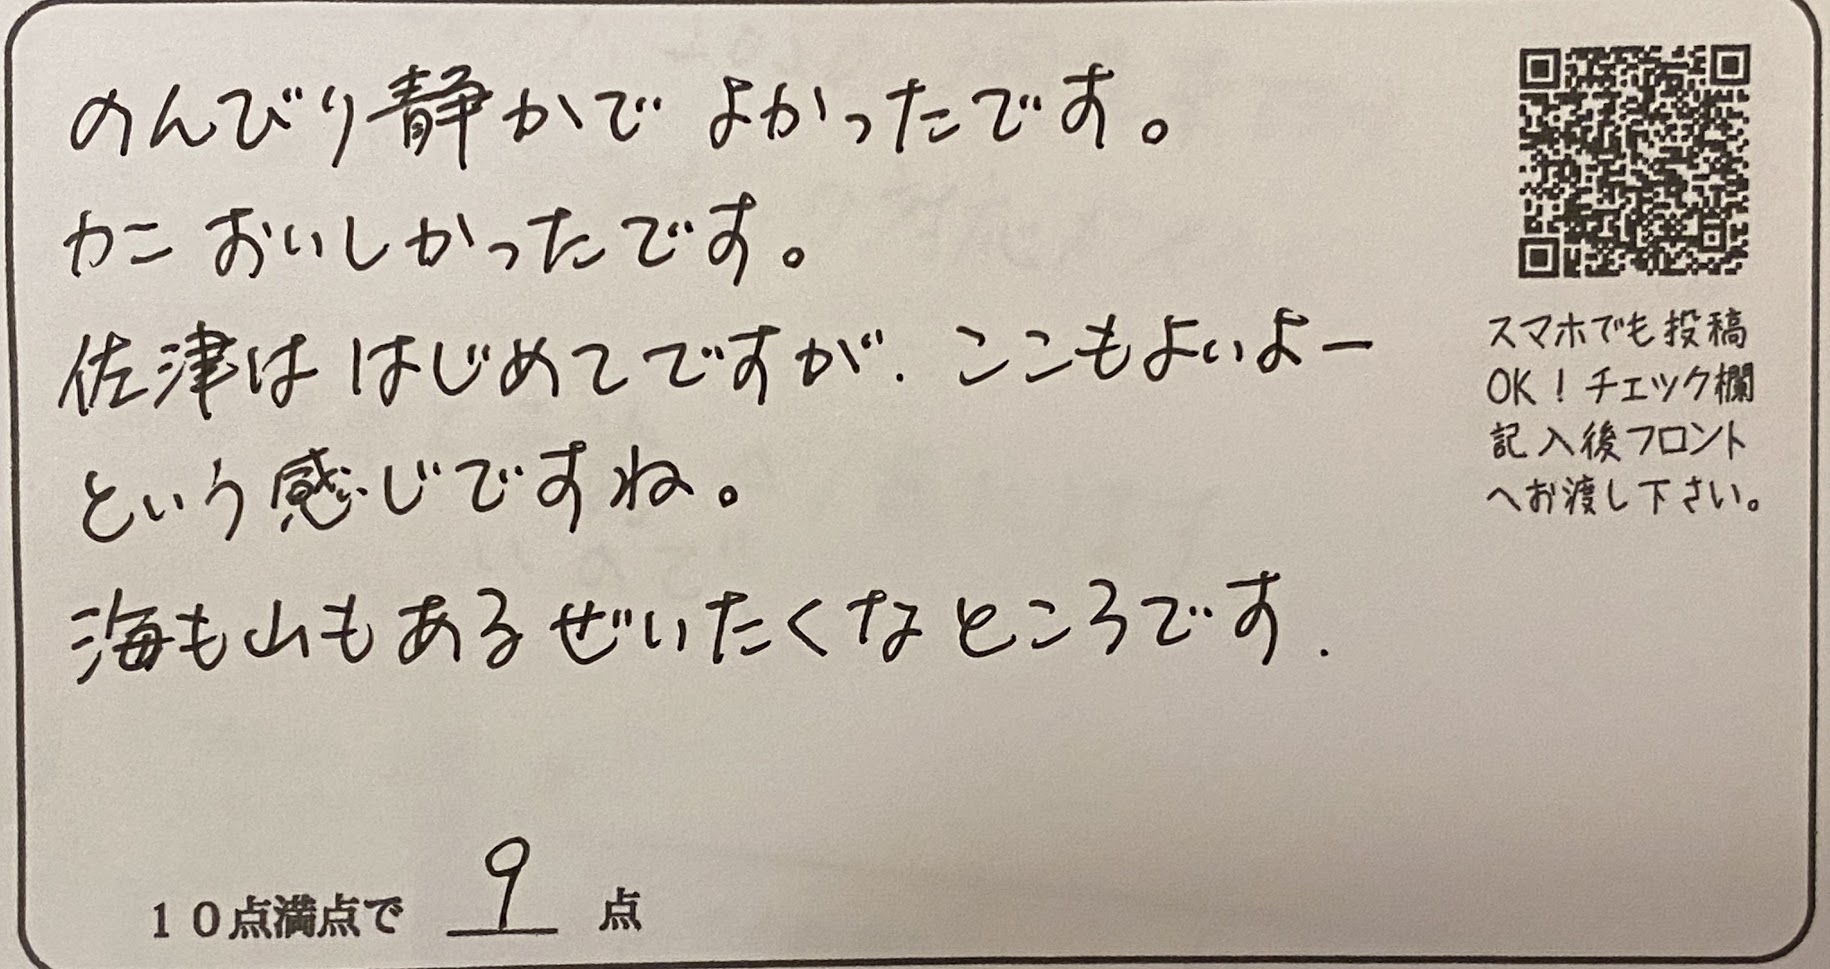 のんびり静かで よかったです。
カニ おいしかったです。
佐津は はじめてですが、ここもよいよー
という感じですね。
海も山もあるぜいたくなところです.
スマホでも投稿
OK！チェック欄
記入後フロント
へお渡し下さい。
１０点満点で 9 点